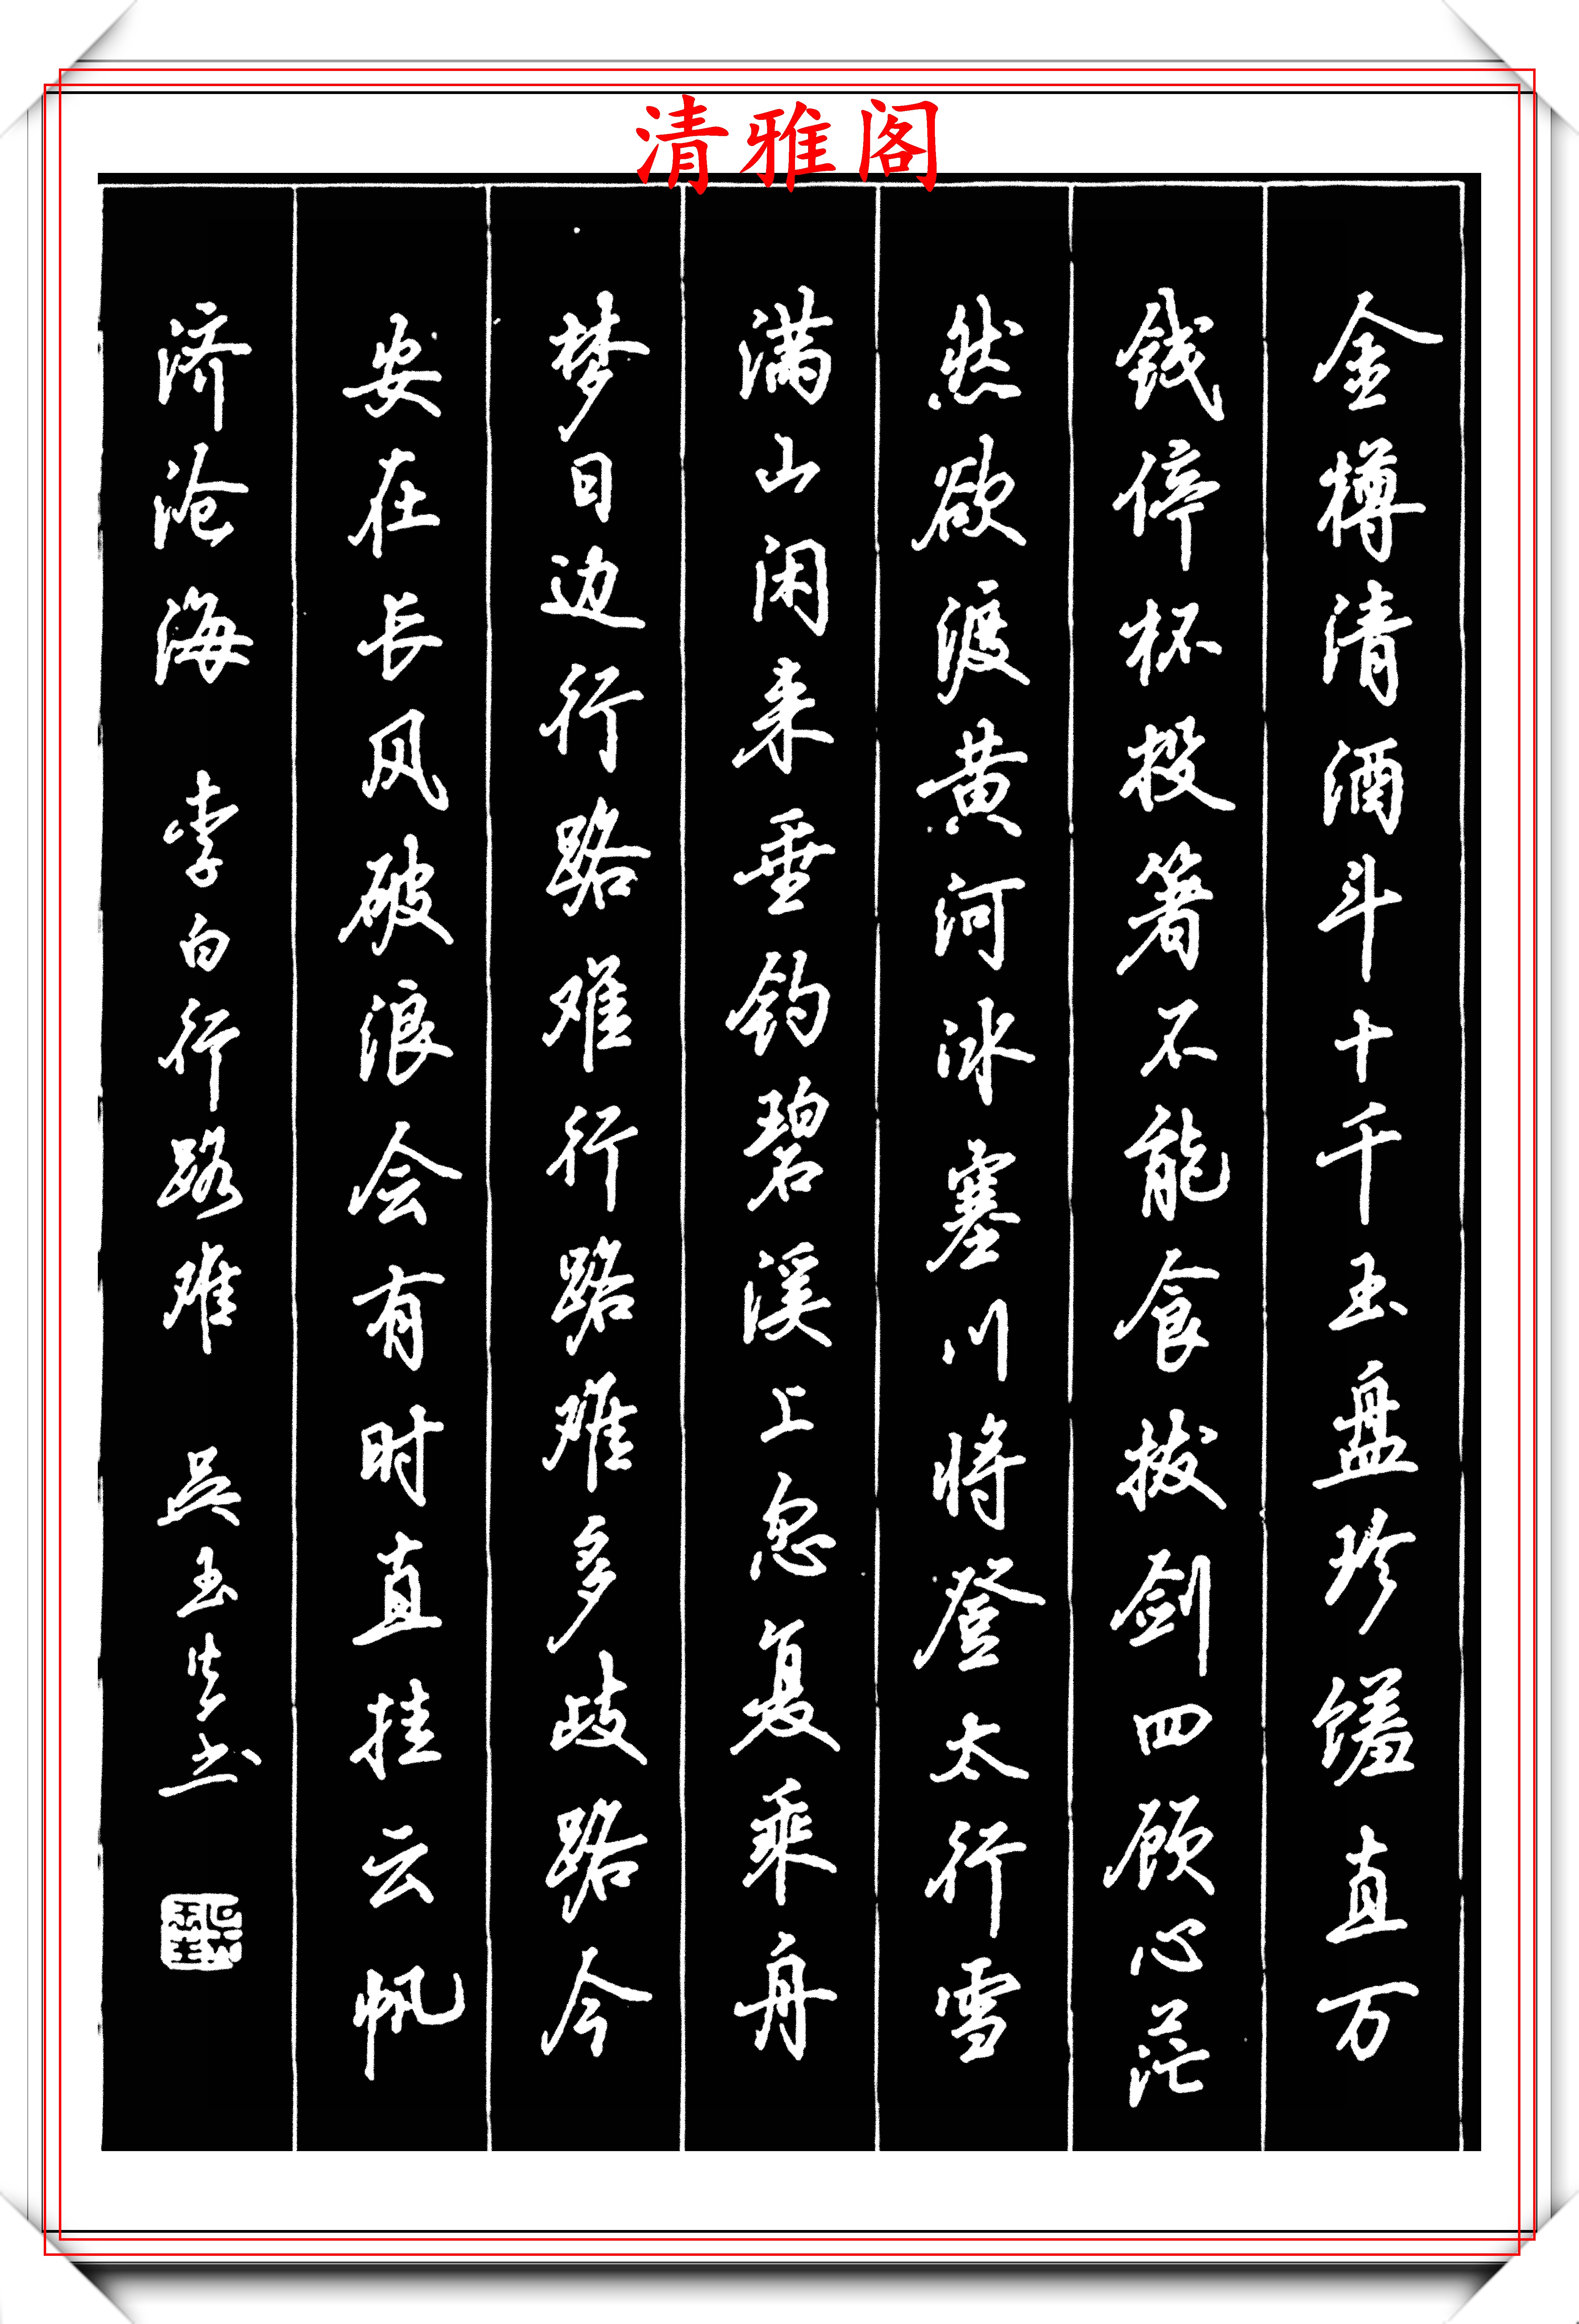 清雅阁
金樽清酒斗十千玉盘珍馐直万
钱停杯投箸不能食拔剑四顾心茫
然欲渡黄河冰塞川将登太行雪
满山闲来垂钓碧溪上忽复乘舟
梦日边行路难行路难多歧路今
安在长风破浪会有时直挂云帆
济沧海 李白行路难 吴玉生书